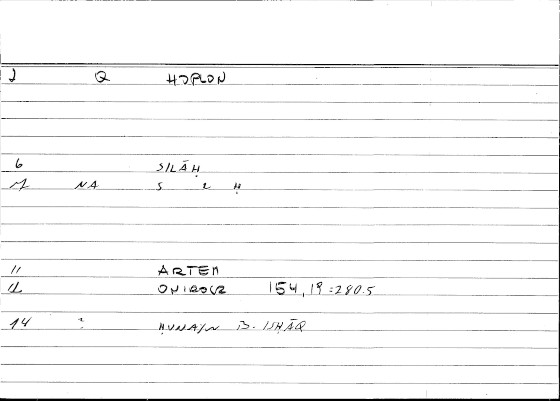 2 Q HOPLON
6 SILĀḤ
M NA S L Ḥ
11 ARTEM
12 ONIROCR 154,19:280.5
14 : ḤUNAIN B. ISḤĀQ